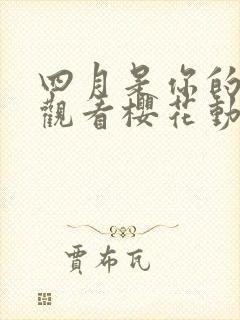 四月是你的
觀看櫻花動
賈布瓦